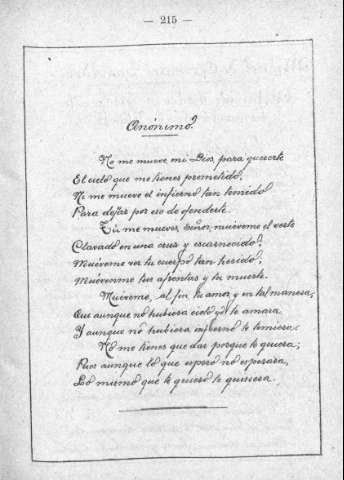 — 215 —
Anónimo.
No me mueve mi Dios, para quererte
El cielo que me tienes prometido,
Ni me mueve el infierno tan temido
Para dejar por eso de ofenderte.
Tú me mueves, Señor, muéveme el verte
Clavado en una cruz y escarnecido;
Muéveme ver tu cuerpo tan herido;
Muévenme tus afrentas y tu muerte.
Muéveme, al fin, tu amor, y en tal manera,
Que aunque no hubiera cielo yo te amara
Y aunque no hubiera infierno te temiera.
No me tienes que dar porque te quiera;
Pues aunque lo que espero no esperara,
Lo mismo que te quiero te quisiera.